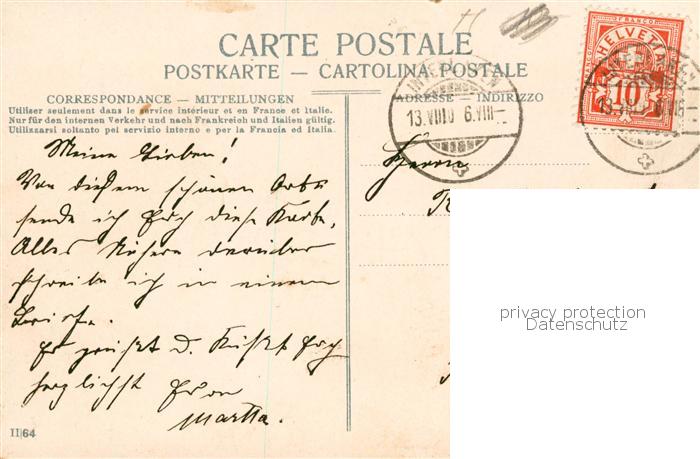 CARTE POSTALE
POSTKARTE — CARTOLINA POSTALE
CORRESPONDANCE — MITTEILUNGEN
Utiliser seulement dans le service intérieur et en France et Italie.
Nur für den internen Verkehr und nach Frankreich und Italien gültig.
Utilizzarsi soltanto pei servizio interno e per la Francia ed Italia.
ADRESSE — INDIRIZZO
FRANCO
HELVETIA
10
13.VIII.10 6.VIII—
Herrn
Meine Lieben!
Von diesem schönen Orte
sende ich Euch diese Karte,
Alles Nähere darüber
schreibe ich in einem
Briefe.
Es grüßt u. küßt Euch
herzlichst Eure
Martha.
II|64
privacy protection
Datenschutz